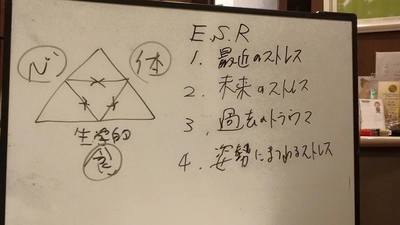 E.S.R
1. 最近のストレス
2. 未来のストレス
3. 過去のトラウマ
4. 姿勢にまつわるストレス
心
体
生学的
食